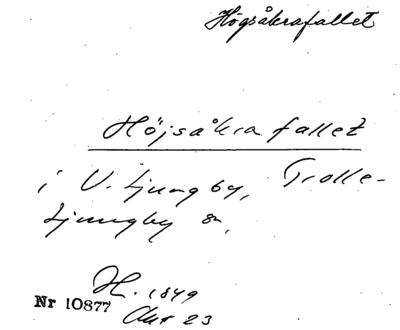 Högsåkrafallet
Höjsåkra fallet
i V. Ljungby, Trolle-
Ljungby sn,
H. 1849
Nr 10877
Akt 23